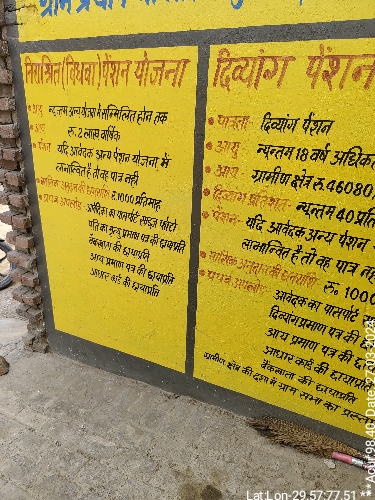 ग्राम प्रधान
निराश्रित (विधवा) पेंशन योजना
आयु न्यूनतम अन्य योजना में सम्मिलित होने तक
आय रु. 2 लाख वार्षिक
पेंशन यदि आवेदक अन्य पेंशन योजना में
लाभान्वित है तो वह पात्र नहीं
मासिक अनुदान की धनराशि रु.1000 प्रतिमाह
प्रपत्र आवश्यक- आवेदक का पासपोर्ट साइज फोटो
पति का मृत्यु प्रमाण पत्र की छायाप्रति
बैंकखाता की छायाप्रति
आय प्रमाण पत्र की छायाप्रति
आधार कार्ड की छायाप्रति
दिव्यांग पेंशन
पात्रता: दिव्यांग पेंशन
आयु: न्यूनतम 18 वर्ष अधिक
आय: ग्रामीण क्षेत्र रु.46080
दिव्यांग प्रतिशत: न्यूनतम 40 प्रति
पेंशन- यदि आवेदक अन्य पेंशन
लाभान्वित है तो वह पात्र नह
मासिक अनुदान की धनराशि रु० 1000
आवेदक का पासपोर्ट
दिव्यांग प्रमाण पत्र की
आय प्रमाण पत्र की छा
आधार कार्ड की छायाप्रति
बैंकखाता की छायाप्रति
ग्रामीण क्षेत्र की दशा में ग्राम सभा का प्रस्त
Lat Lon-29.57:77.51